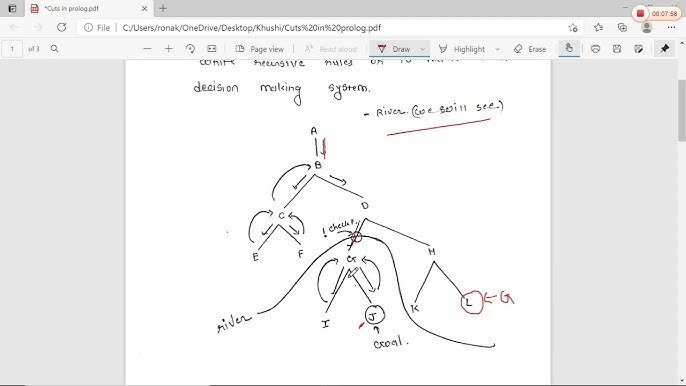 00:07:58
*Cuts in prolog.pdf
File
C:/Users/ronak/OneDrive/Desktop/Khushi/Cuts%20in%20prolog.pdf
1 of 3
Page view
Read aloud
Draw
Highlight
Erase
recursive rules or to
decision making system.
- River. (we will see)
A
B
D
C
! check
E F
H
G
K L ← G
river
I J
Goal.